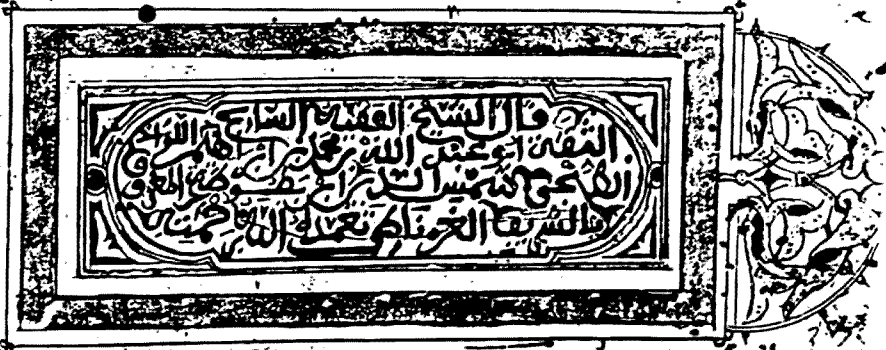 قال الشيخ الفقيه السايح
الثقة ابو عبد الله محمد بن ابرهيم اللواتي
الطنجي شمس الدين بن بطوطة المعروف
بالشريف الغرناطي تغمده الله برحمته